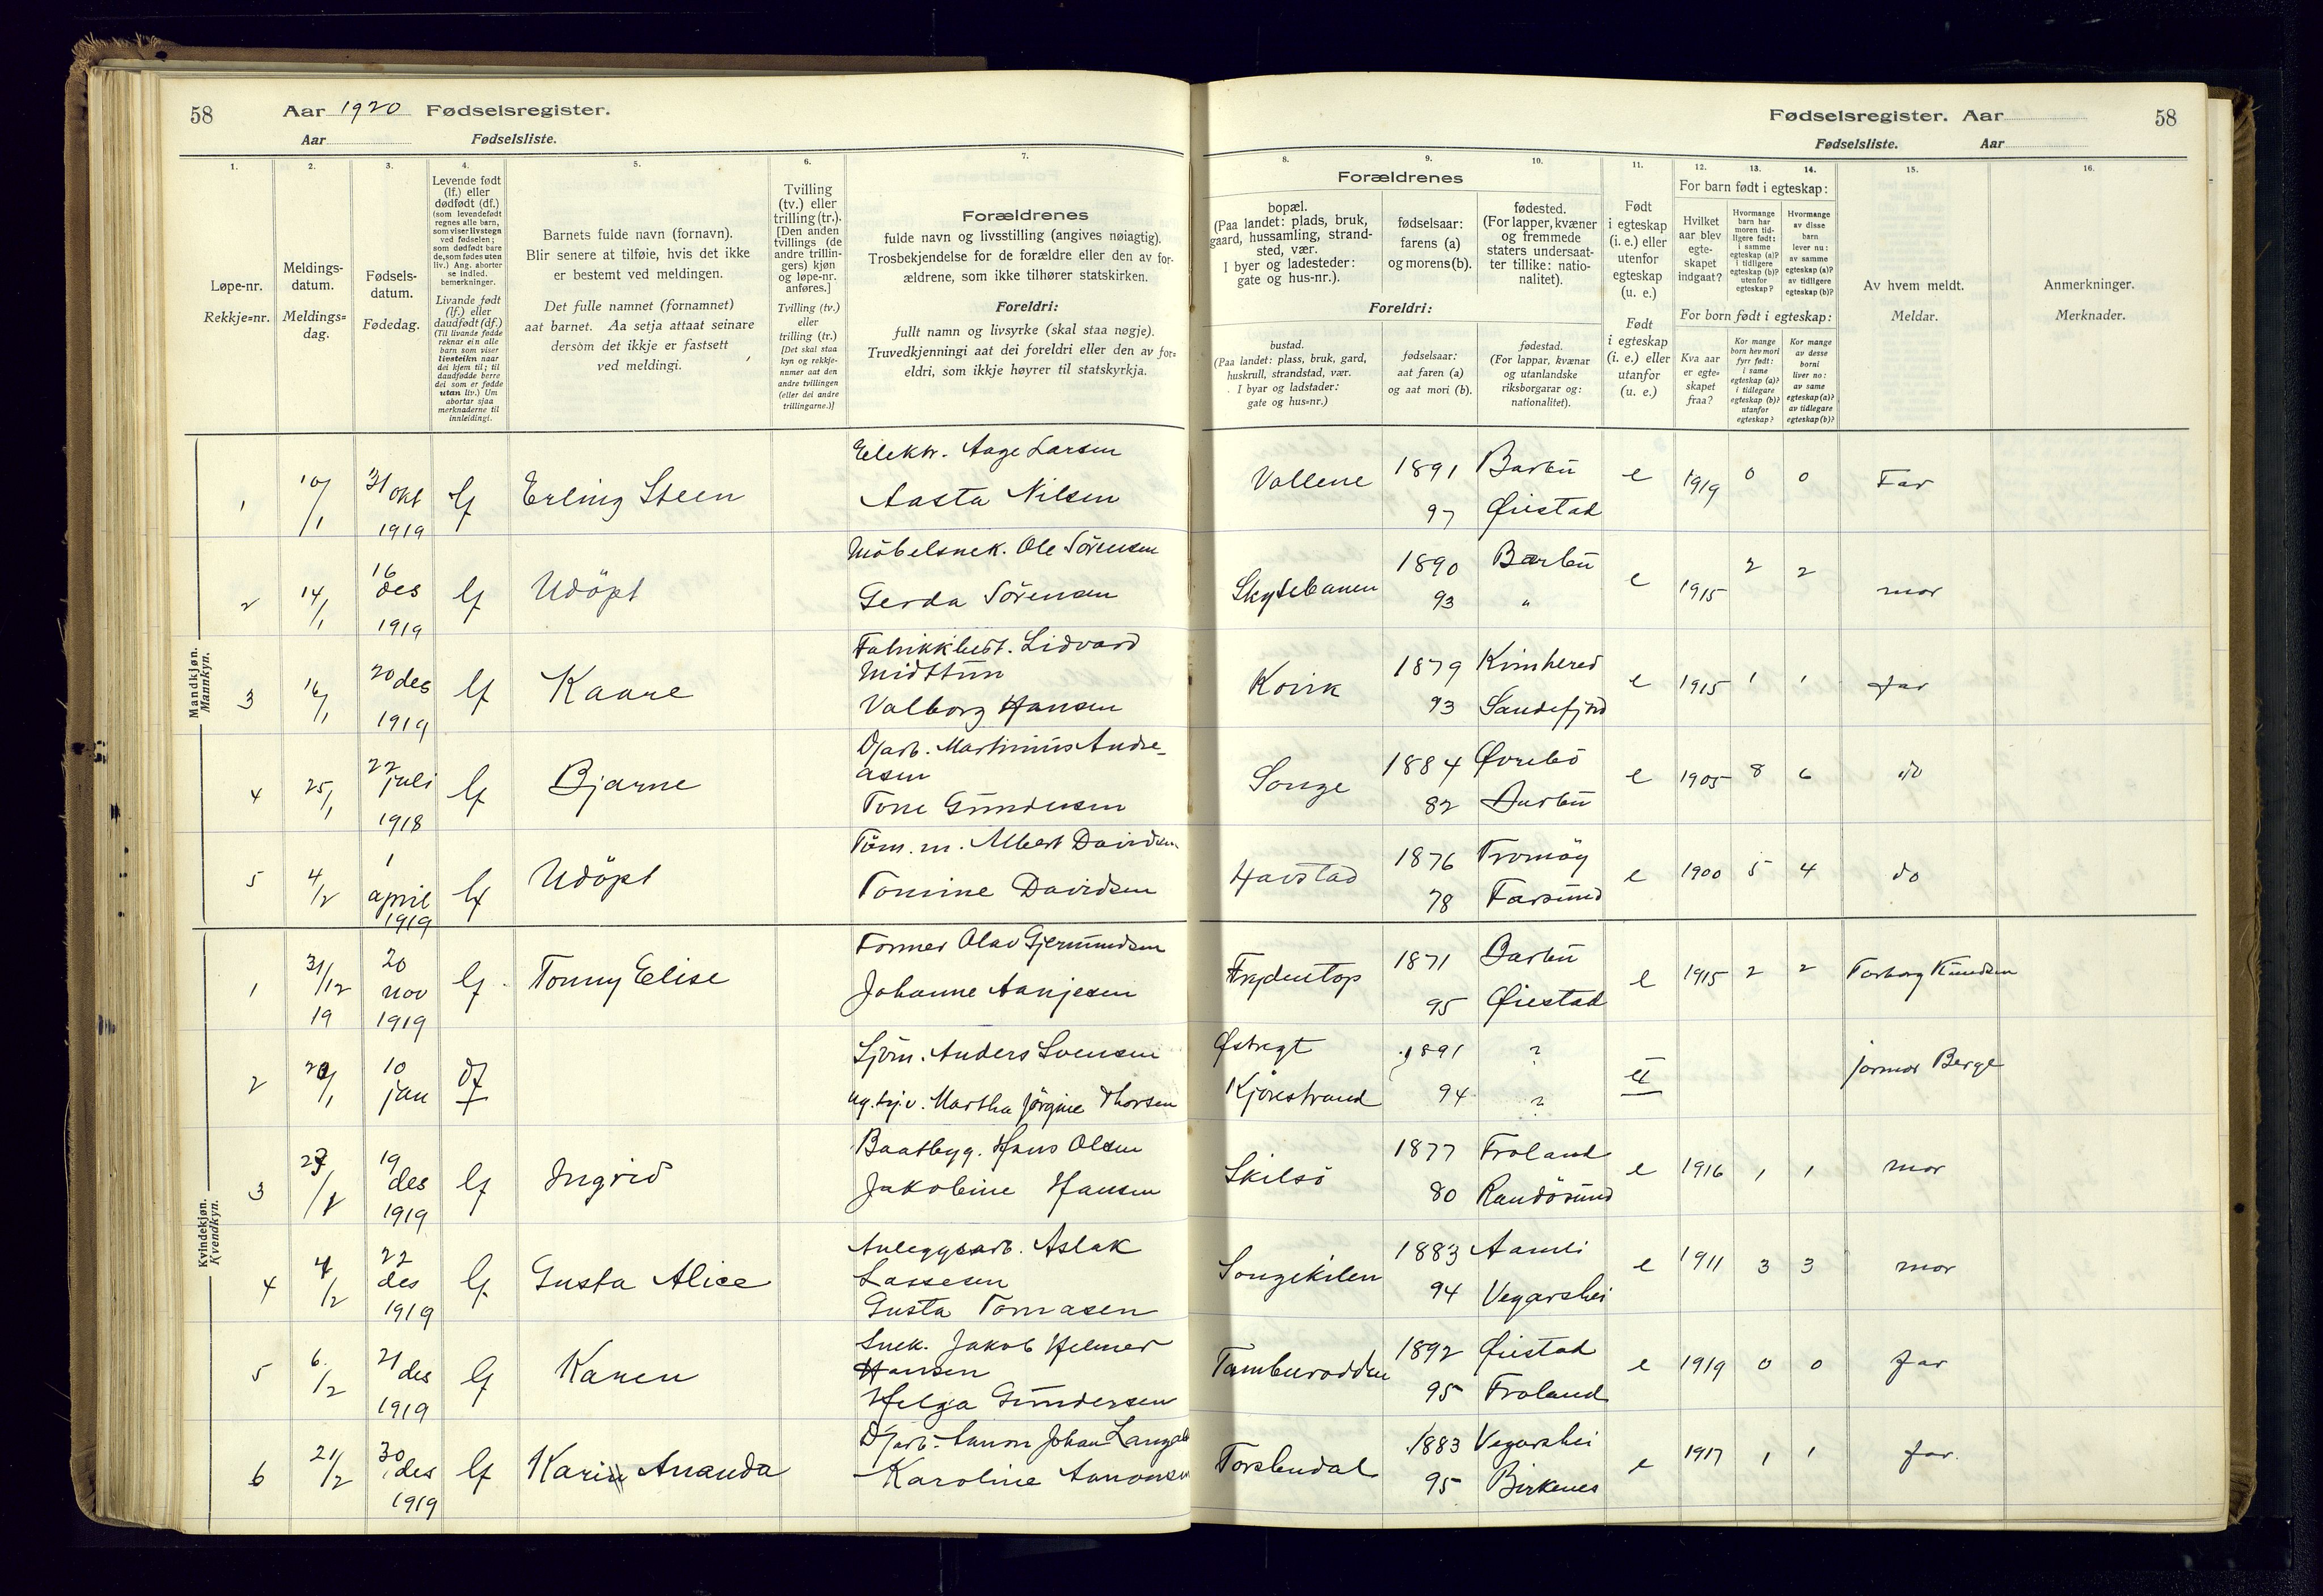 58
Aar 1920 Fødselsregister.
Aar Fødselsliste.
Fødselsregister. Aar
58
Fødselsliste. Aar
1. 2. 3. 4. 5. 6. 7.
Løpe-nr.
Rekkje=nr.
Meldings-
datum.
Meldings=
dag.
Fødsels-
datum.
Fødedag.
Levende født
(lf.) eller
dødfødt (df.)
(som levendefødt
regnes alle barn,
som viser livstegn
ved fødselen;
som dødfødt bare
de, som fødes uten
liv.) Ang. aborter
se indled.
bemerkninger.
Livande født
(lf.) eller
daudfødt (df.)
(Til livande fødde
reknar ein alle
barn som viser
livsteikn naar
dei kjem til; til
daudfødde berre
dei som er fødde
utan liv.) Um
abortar sjaa
merknaderne til
innleidingi.
Barnets fulde navn (fornavn).
Blir senere at tilføie, hvis det ikke
er bestemt ved meldingen.
Det fulle namnet (fornamnet)
aat barnet. Aa setja attaat seinare
dersom det ikkje er fastsett
ved meldingi.
Tvilling
(tv.) eller
trilling (tr.).
[Den anden
tvillings (de
andre trillin-
gers) kjøn
og løpe-nr.
anføres.]
Tvilling (tv.)
eller
trilling (tr.)
[Det skal staa
kyn og rekkje-
numer aat den
andre tvillingen
(eller dei andre
trillingarne.)]
Forældrenes
fulde navn og livsstilling (angives nøiagtig).
Trosbekjendelse for de forældre eller den av for-
ældrene, som ikke tilhører statskirken.
Foreldri:
fullt namn og livsyrke (skal staa nøgje).
Truvedkjenningi aat dei foreldri eller den av for=
eldri, som ikkje høyrer til statskyrkja.
8. 9. 10. 11. 12. 13. 14. 15. 16.
Forældrenes
bopæl.
(Paa landet: plads, bruk,
gaard, hussamling, strand-
sted, vær.
I byer og ladesteder:
gate og hus-nr.).
fødselsaar:
farens (a)
og morens (b).
fødested.
(For lapper, kvæner
og fremmede
staters undersaat-
ter tillike: natio-
nalitet).
Foreldri:
bustad.
(Paa landet: plass, bruk, gard,
huskrull, strandstad, vær.
I byar og ladstader:
gate og hus=nr.)
fødselsaar:
aat faren (a)
og aat mori (b).
fødestad.
(For lappar, kvænar
og utanlandske
riksborgarar og:
nationalitet).
Født
i egteskap
(i. e.) eller
utenfor
egteskap
(u. e.)
Født
i egteskap
(i. e.) eller
utanfor
(u. e.)
For barn født i egteskap:
Hvilket
aar blev
egte-
skapet
indgaat?
Hvormange
barn har
moren tid-
ligere født:
i samme
egteskap (a)?
i tidligere
egteskap (b)?
utenfor
egteskap?
Hvormange
av disse
barn
lever nu:
av samme
egteskap (a)?
av tidligere
egteskap (b)?
For born født i egteskap:
Kva aar
er egte=
skapet
fraa?
Kor mange
born hev mori
fyrr født:
i same
egteskap (a)?
i tidlegare
egteskap (b)?
utanfor
egteskap?
Kor mange
av desse
borni
liver no:
av same
egteskap (a)?
av tidlegare
egteskap (b)?
Av hvem meldt.
Meldar.
Anmerkninger.
Merknader.
Mandkjøn.
Mannkyn.
1 10/1 31 okt 1919 lf Erling Steen
Elektr. Aage Larsen
Aasta Nilsen
Vollene 1891 Barbu e 1919 0 0 Far
97 Øiestad
2 14/1 16 des 1919 lf Udöpt
Möbelsnek. Ole Sörensen
Gerda Sörensen
Skytebanen 1890 Barbu e 1915 2 2 mor
93 "
3 16/1 20 des 1919 lf Kaare
Fabrikkbest. Lidvard
Midttun
Valborg Hansen
Kovik 1879 Kvinhered e 1915 1 1 far
93 Sandefjord
4 25/1 22 juli 1918 lf Bjarne
Martinius Andre-
asen
Tone Gundersen
Songe 1884 Øvrebö e 1905 8 6 do
82 Barbu
5 4/2 1 april 1919 lf Udöpt
Töm. m. Albert Davidsen
Tomine Davidsen
Havstad 1876 Tromöy e 1900 5 4 do
78 Farsund
Kvindekjøn.
Kvendkyn.
1 31/12 19 20 nov 1919 lf. Tonny Elise
Former Olav Gjermundsen
Johanne Aanjesen
Frydentop 1871 Barbu e 1915 2 2 Torborg Knudsen
95 Øiestad
2 20/1 10 jan df
Sjöm. Anders Svensen
ug. tj. v. Martha Jörgine Thorsen
Østregt 1891 ?
Kjörestrand 94 ? jormor Berge
3 27/1 19 des 1919 lf Ingrid
Baatbyg. Hans Olsen
Jakobine Hansen
Skilsö 1877 Froland e 1916 1 1 mor
80 Randösund
4 4/2 22 des 1919 lf Gusta Alice
Anleggsarb. Aslak
Lassesen
Gusta Tomasen
Songekilen 1883 Aamli e 1911 3 3 mor
94 Vegarshei
5 6/2 21 des 1919 lf Karen
Snek. Jakob Helmer
Hansen
Helga Gundersen
Tamburodden 1892 Øiestad e 1919 0 0 far
95 Froland
6 21/2 30 des 1919 lf Karin Ananda
Johan
Karoline
Torsbudal 1883 Vegarshei e 1917 1 1 far.
95 Birkenes